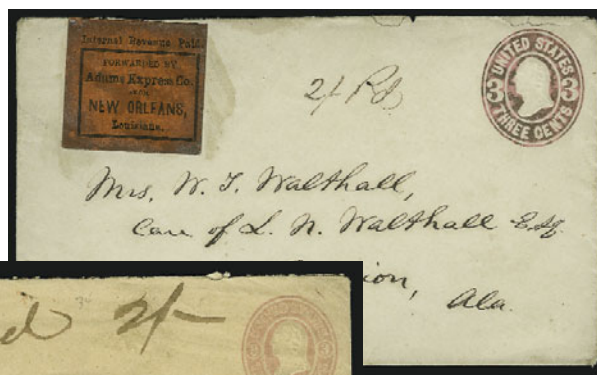 Internal Revenue Paid.
FORWARDED BY
Adams Express Co.
FROM
NEW ORLEANS,
Louisiana.
2/- Pd
UNITED STATES
3 3
THREE CENTS
Mrs. W. T. Walthall,
Care of L. N. Walthall Esq.
ion,
Ala.
d 2/-
3